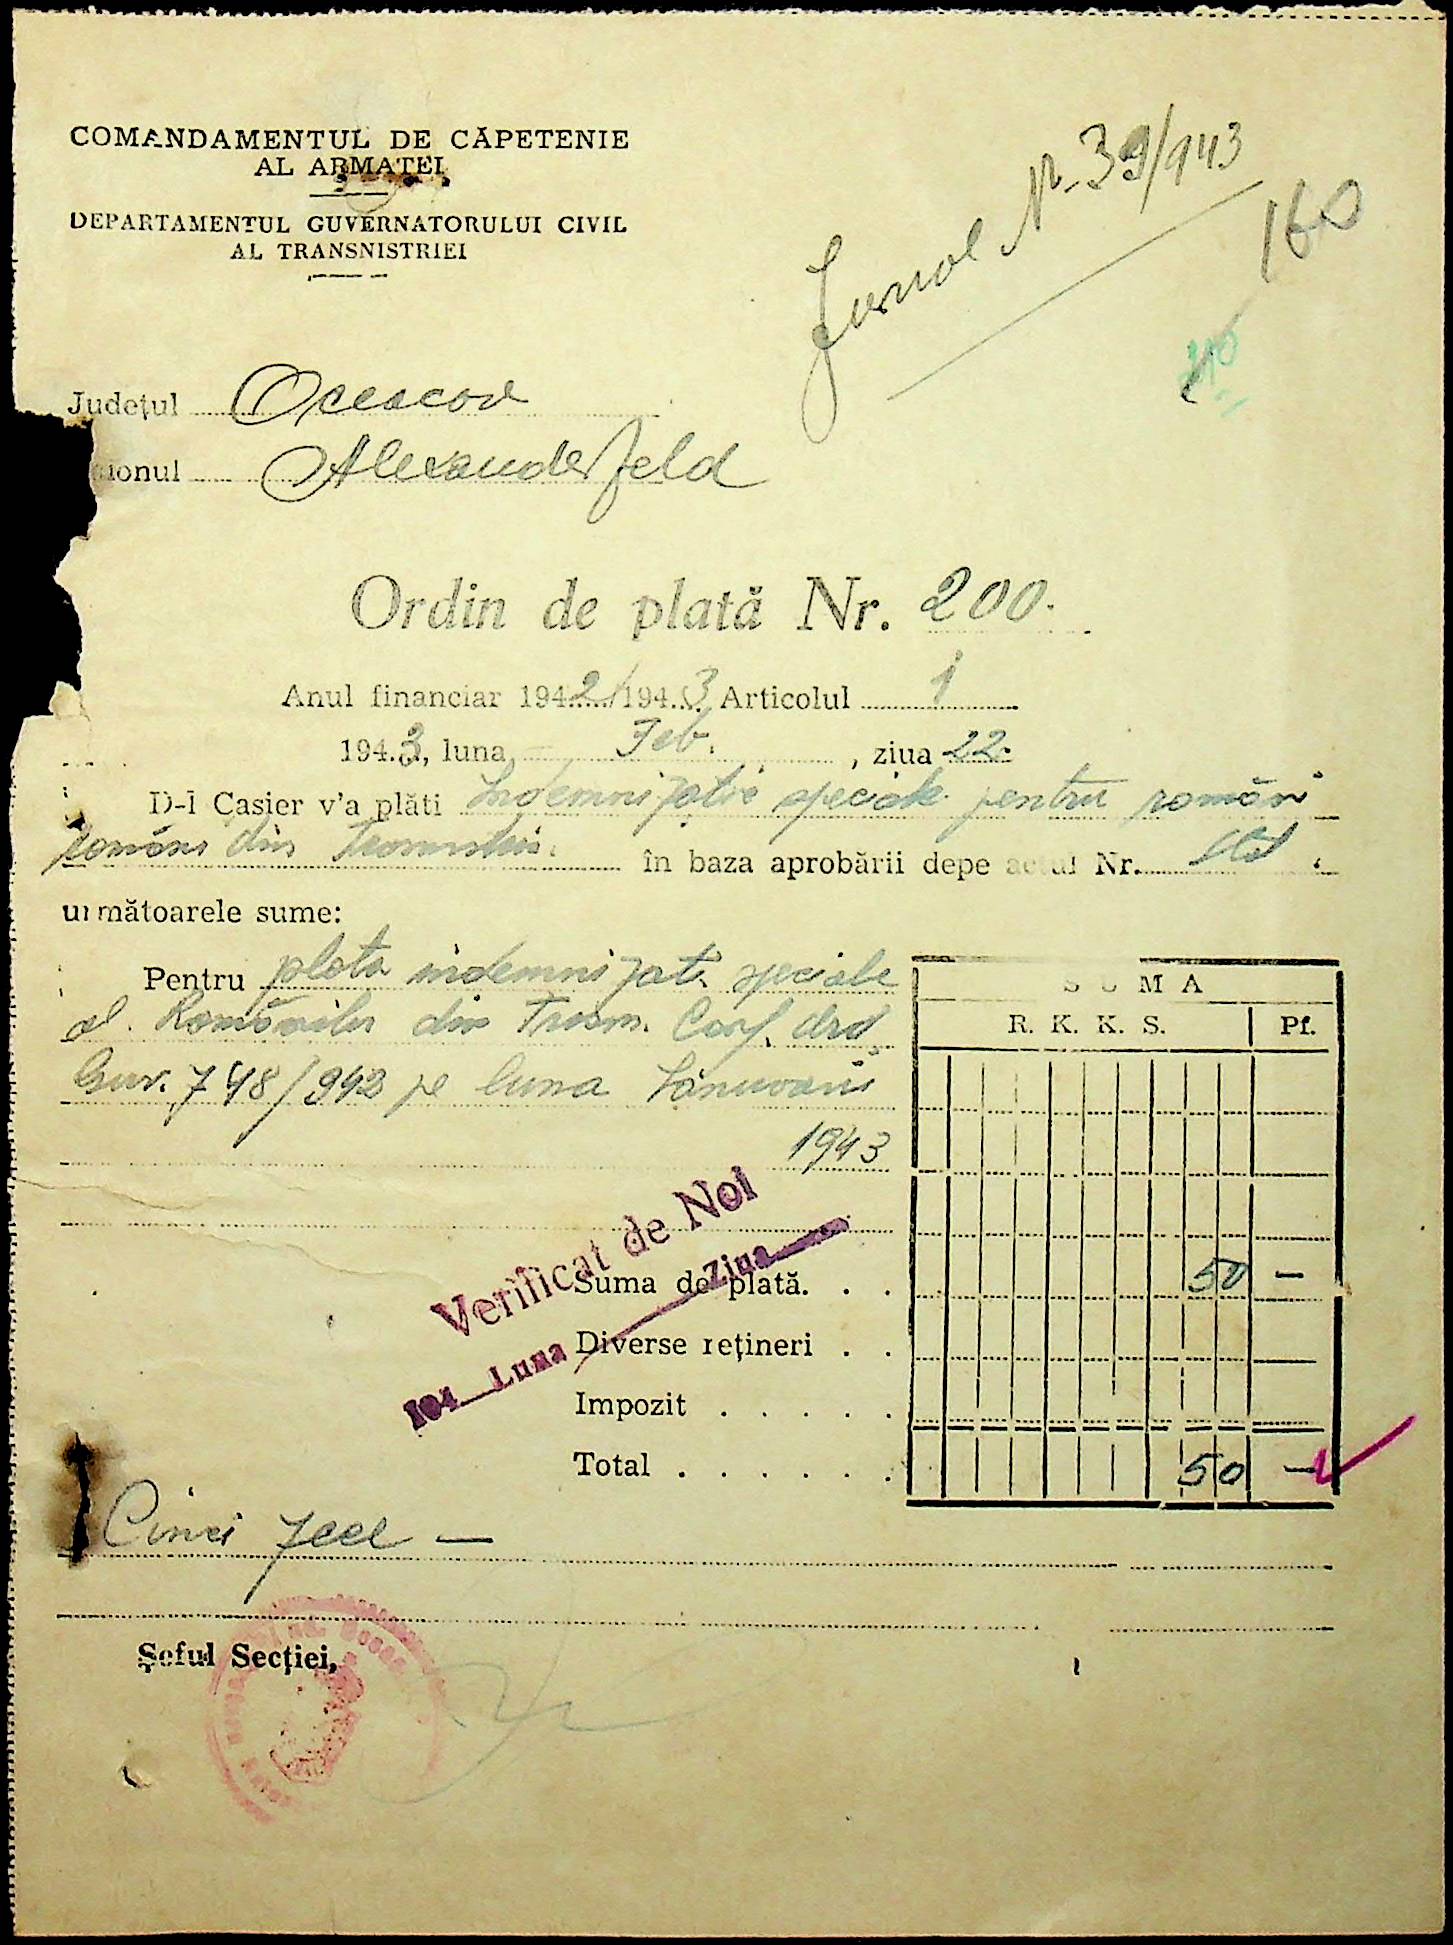 COMANDAMENTUL DE CĂPETENIE
AL ARMATEI
DEPARTAMENTUL GUVERNATORULUI CIVIL
AL TRANSNISTRIEI
Jurnal Nr. 39/943
160
Județul Oceacov
ionul Alexanderfeld
Ordin de plată Nr. 200.
Anul financiar 1942/1943 Articolul 1
1943, luna Feb. , ziua 22.
D-l Casier v'a plăti Indemnizație speciale pentru români
români din în baza aprobării depe actul Nr.
următoarele sume:
Pentru plata indemnizati speciale
al. Românilor din Trasn. Conf. Ord.
Guv. 748/942 pe luna Ianuarie
1943
SUMA
R. K. K. S. Pf.
Verificat de Noi
194 Luna Ziua
Suma de plată. . . 50 —
Diverse rețineri . .
Impozit . . . . .
Total . . . . . . 50 —
Cinci zeci —
Șeful Secției,